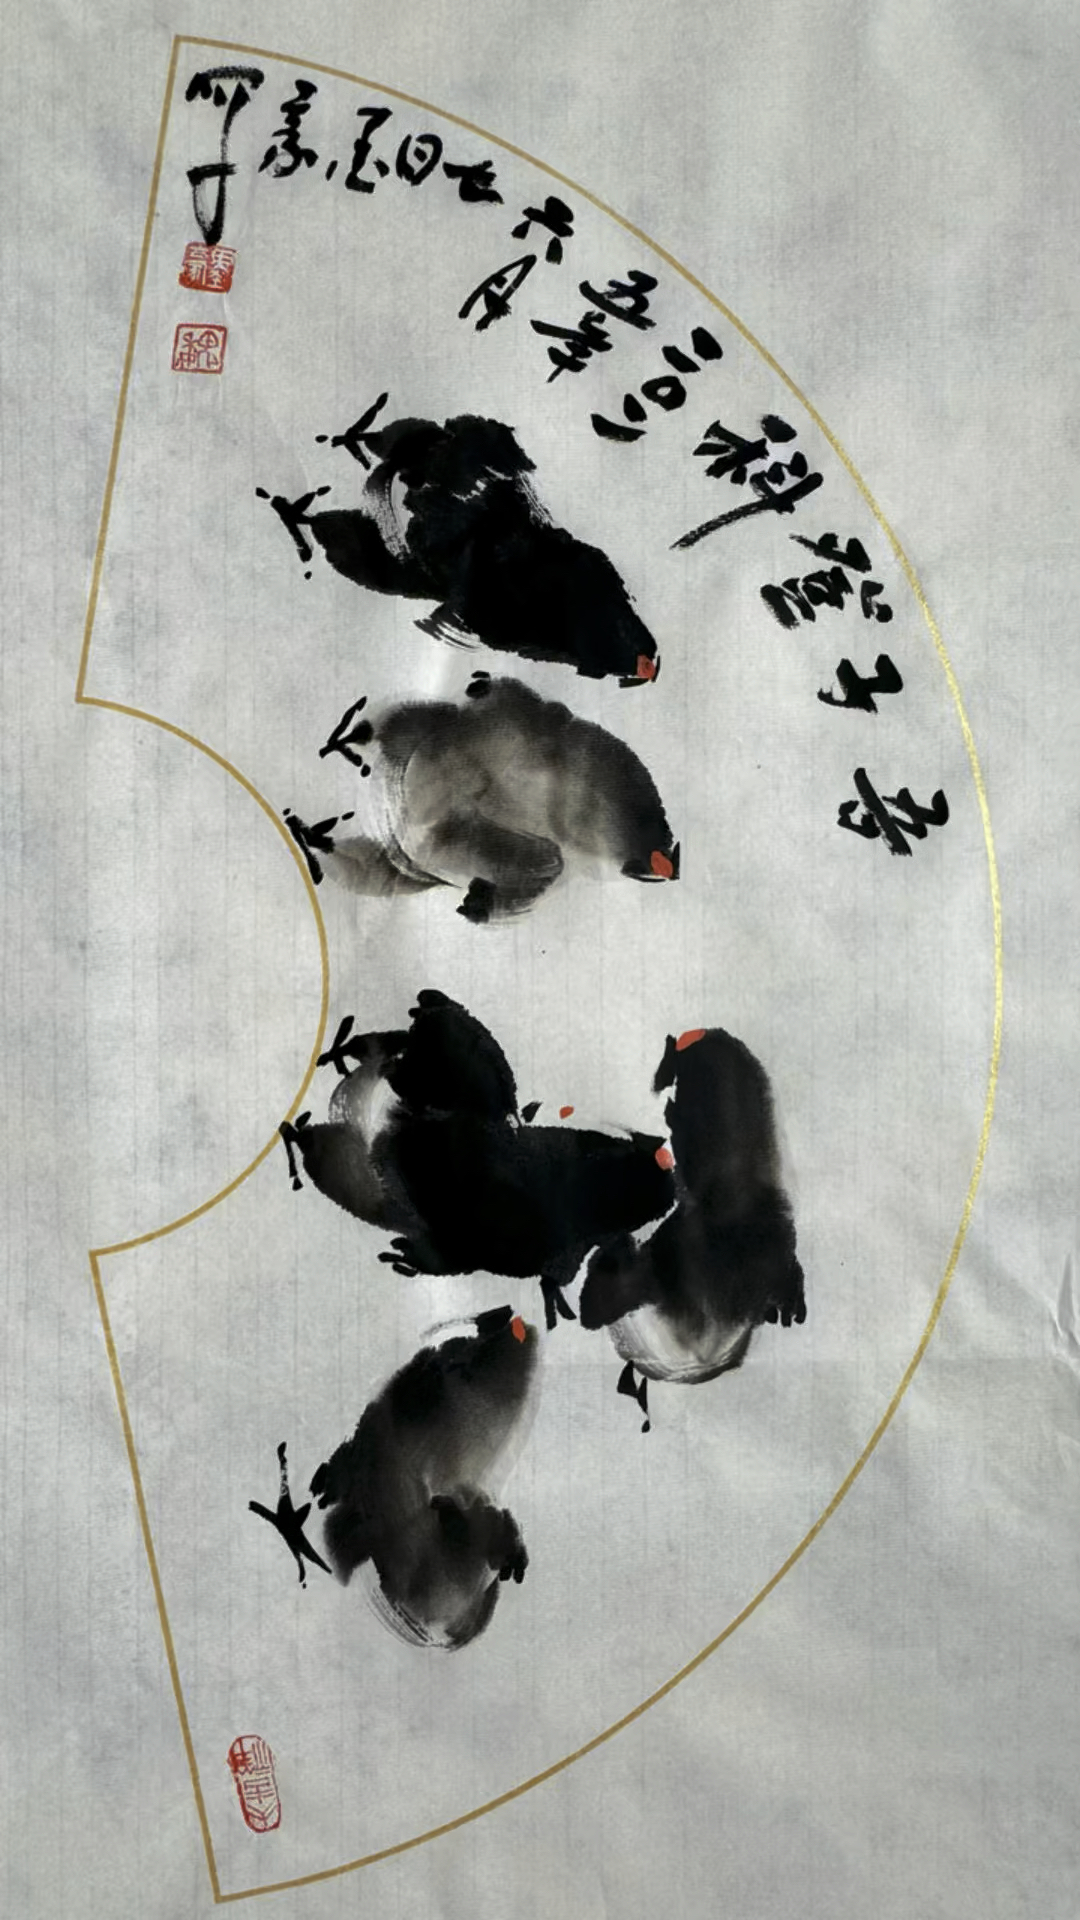 吾子登科
二〇二五年六月七日墨豪写
魏